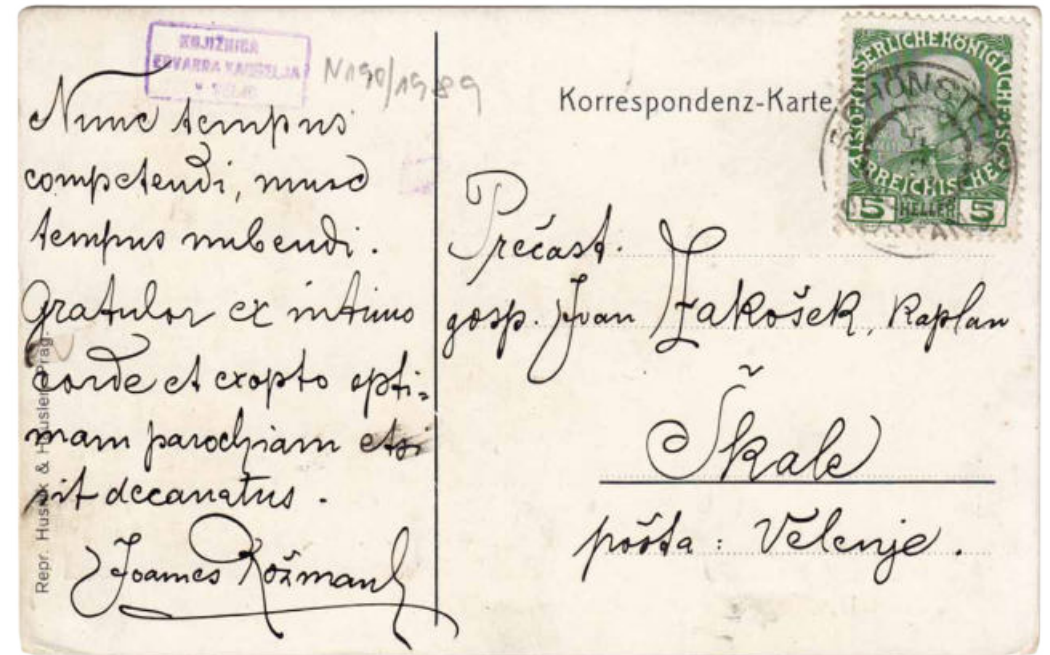 KNJIŽNICA
EDVARDA KARDELJA
N190/1989
Nunc tempus
competendi, nunc
tempus nubendi.
Gratulor ex intimo
corde et exopto opti=
mam parochiam etsi
sit decanatus.
Joannes Rožman
Repr. Husnik & Häusler, Prag.
Korrespondenz-Karte.
KAISERLICHE KÖNIGLICHE ÖSTERREICHISCHE
5 HELLER 5
Prečast.
gosp. Ivan Zakošek, Kaplan
Škale
pošta: Velenje.